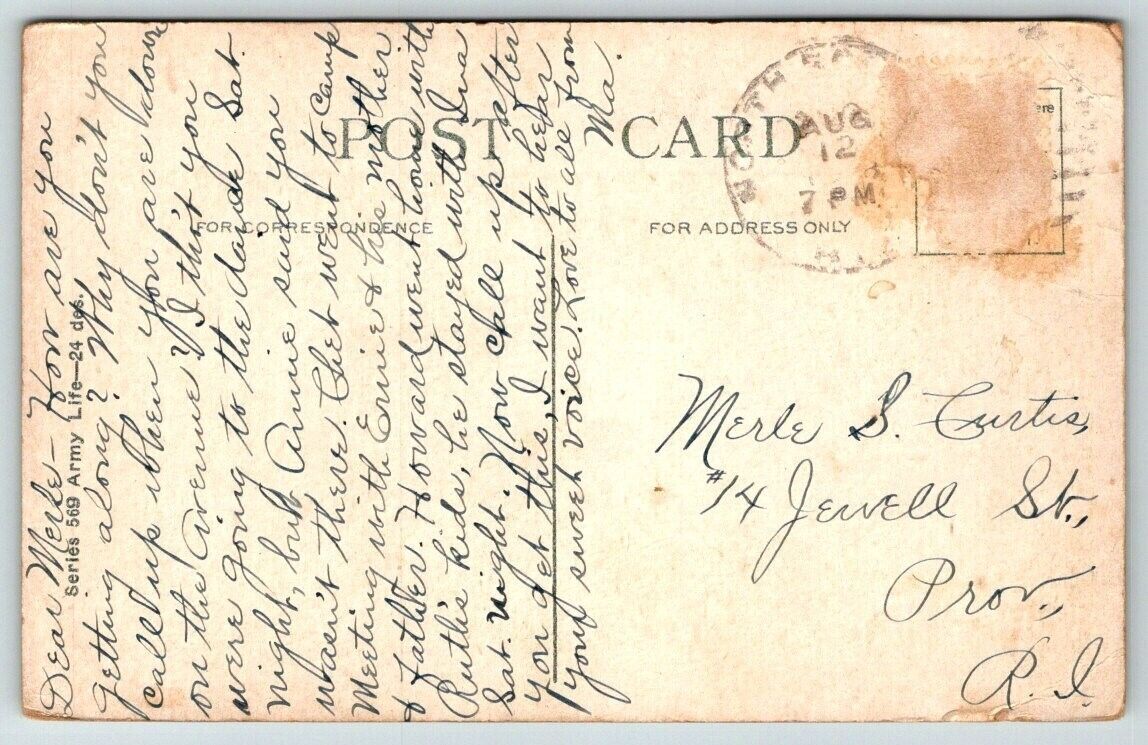 POST CARD
FOR CORRESPONDENCE
FOR ADDRESS ONLY
Series 569 Army Life—24 des.
AUG
12
7 PM
Dear Merle – How are you
getting along? Why don't you
call up when you are down
on the Avenue? I th't you
were going to the dance Sat.
night, but Annie said you
wasn't there. Chet went to Camp
Meeting with Ernie & his mother
& father. Howard went home with
Ruth's kids, he stayed with Ina
Sat. night. Now call up after
you get this, I want to hear
your sweet voice. Love to all from
Ma.
Merle S. Curtis,
#14 Jewell St.,
Prov.,
R.I.